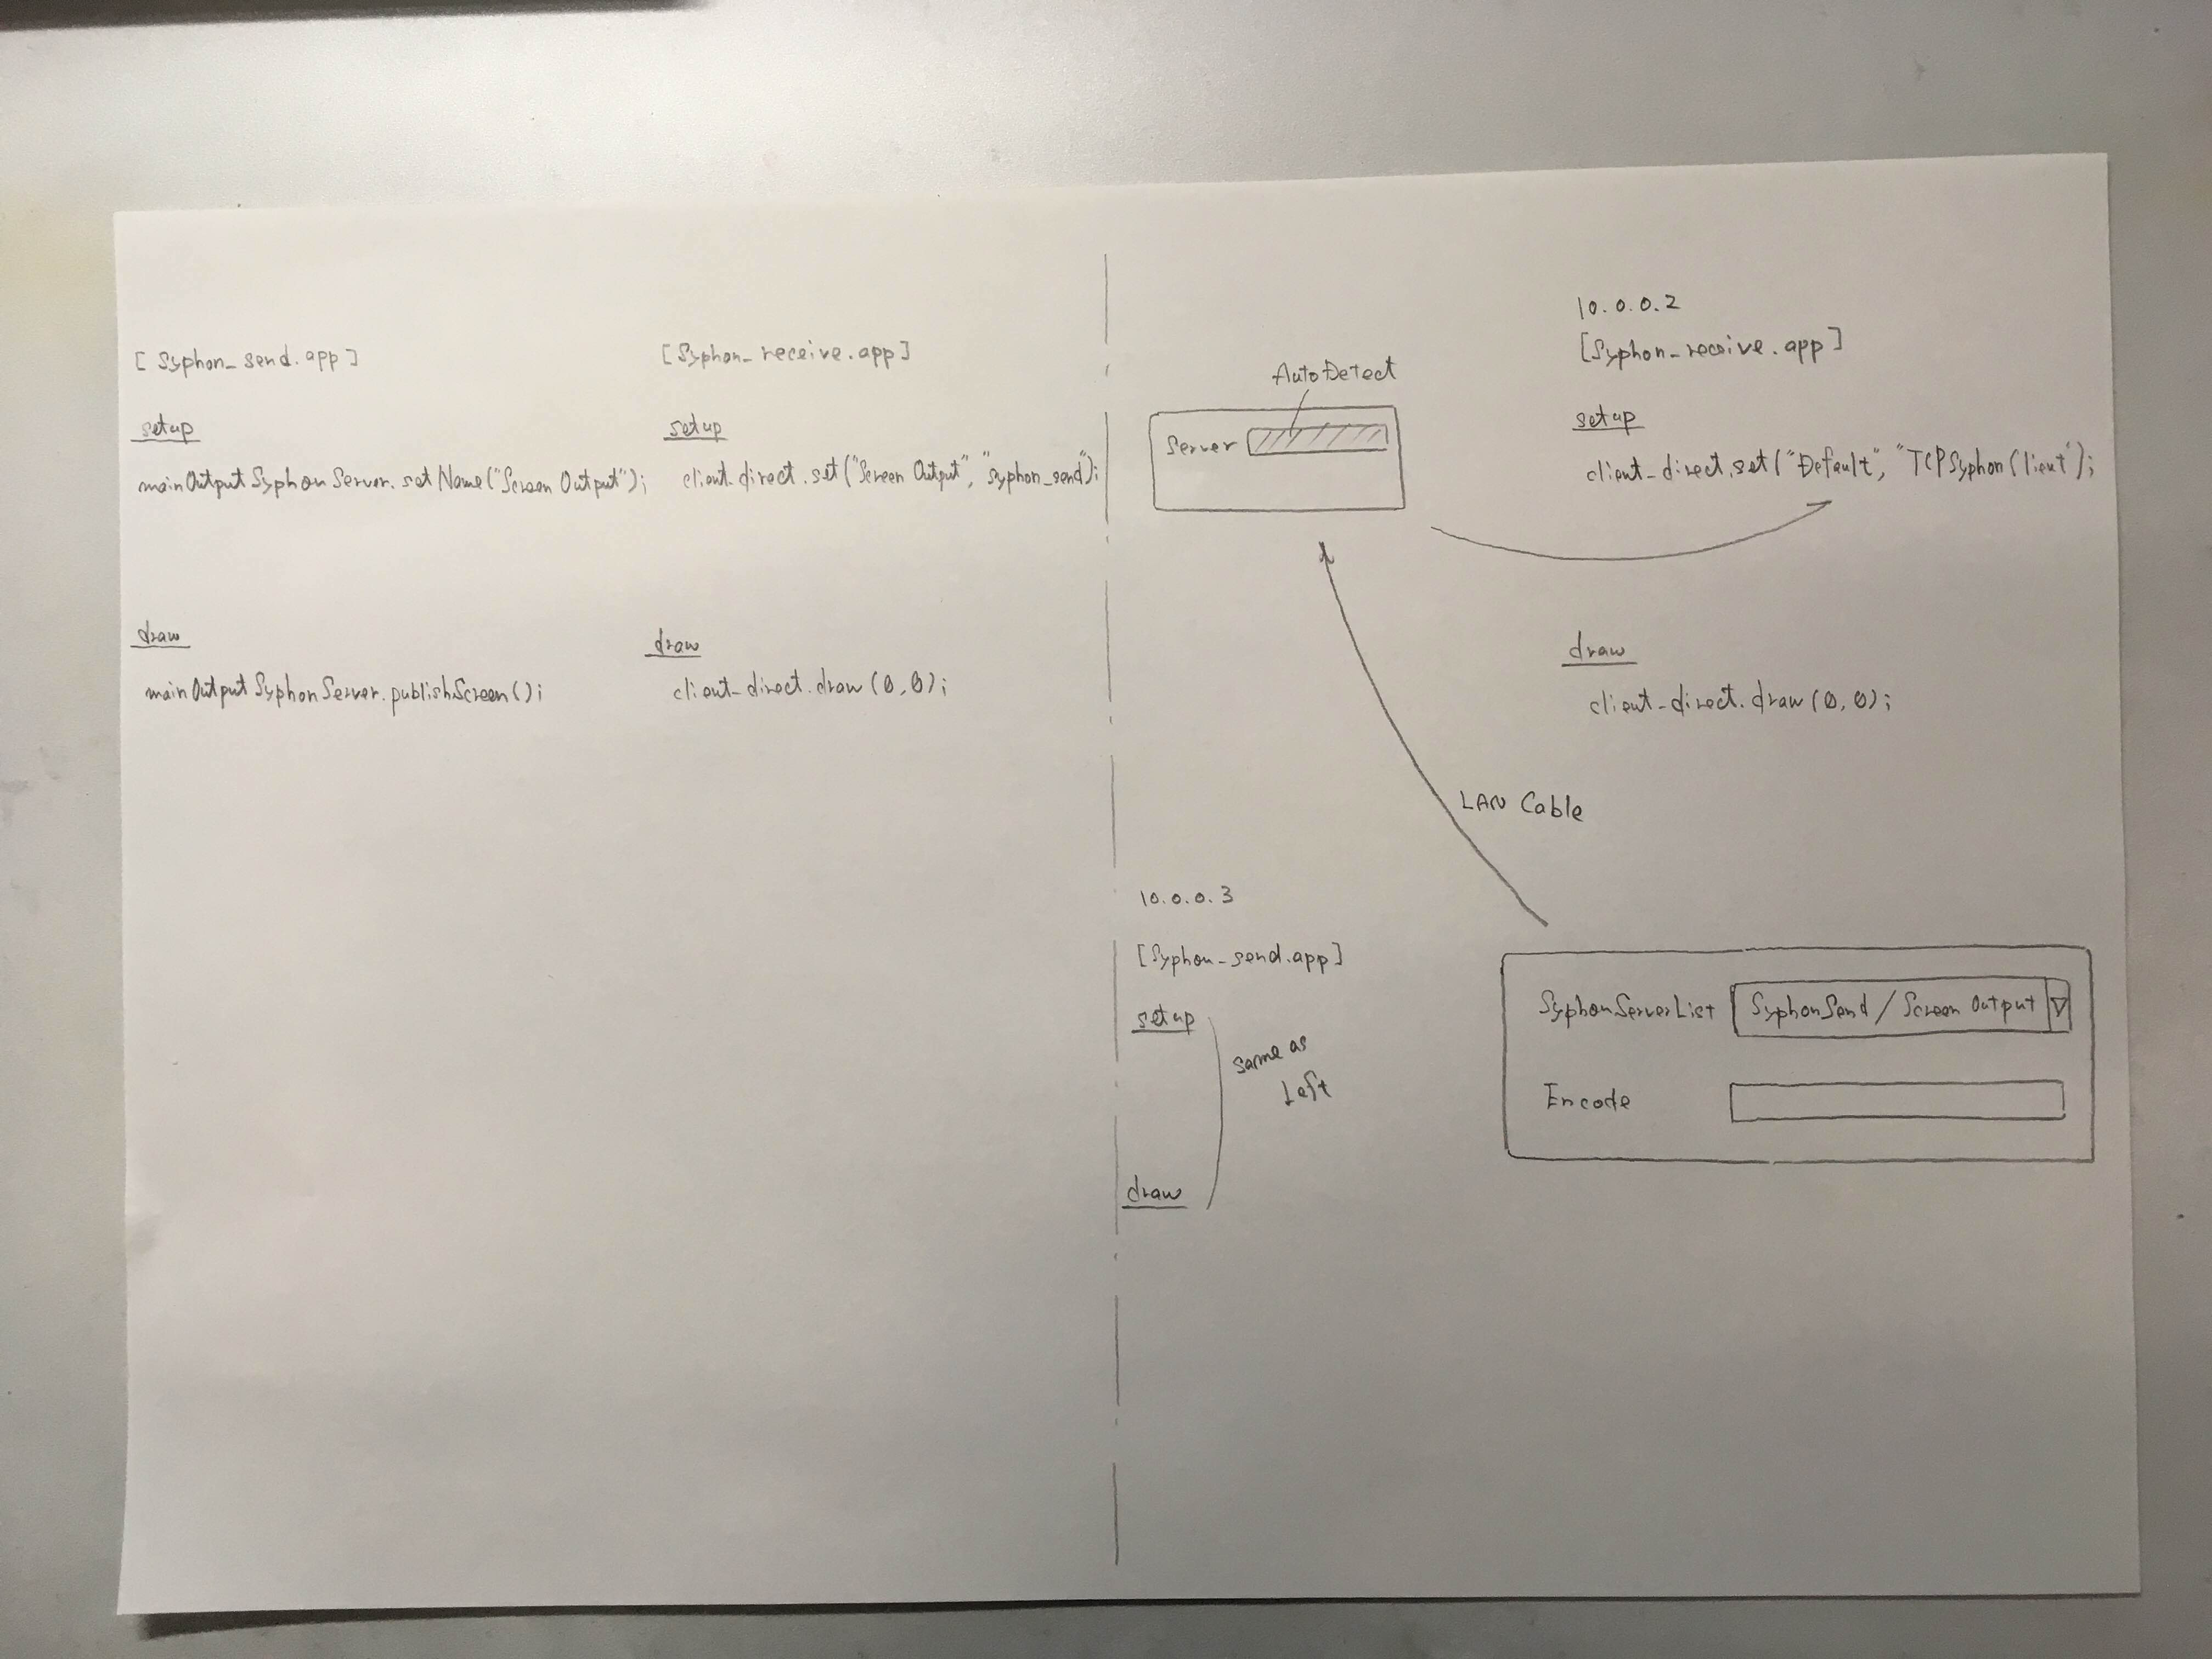 [ Syphon_send.app ]
setup
mainOutputSyphonServer.setName("Screen Output");
draw
mainOutputSyphonServer.publishScreen();
[Syphon_receive.app]
setup
client.direct.set("Screen Output", "Syphon_send");
draw
client_direct.draw(0,0);
AutoDetect
Server
10.0.0.2
[Syphon_receive.app]
setup
client_direct.set("Default", "TCPSyphonClient");
draw
client_direct.draw(0,0);
LAN Cable
10.0.0.3
[Syphon_send.app]
setup
same as
Left
draw
SyphonServerList SyphonSend / Screen Output
Encode